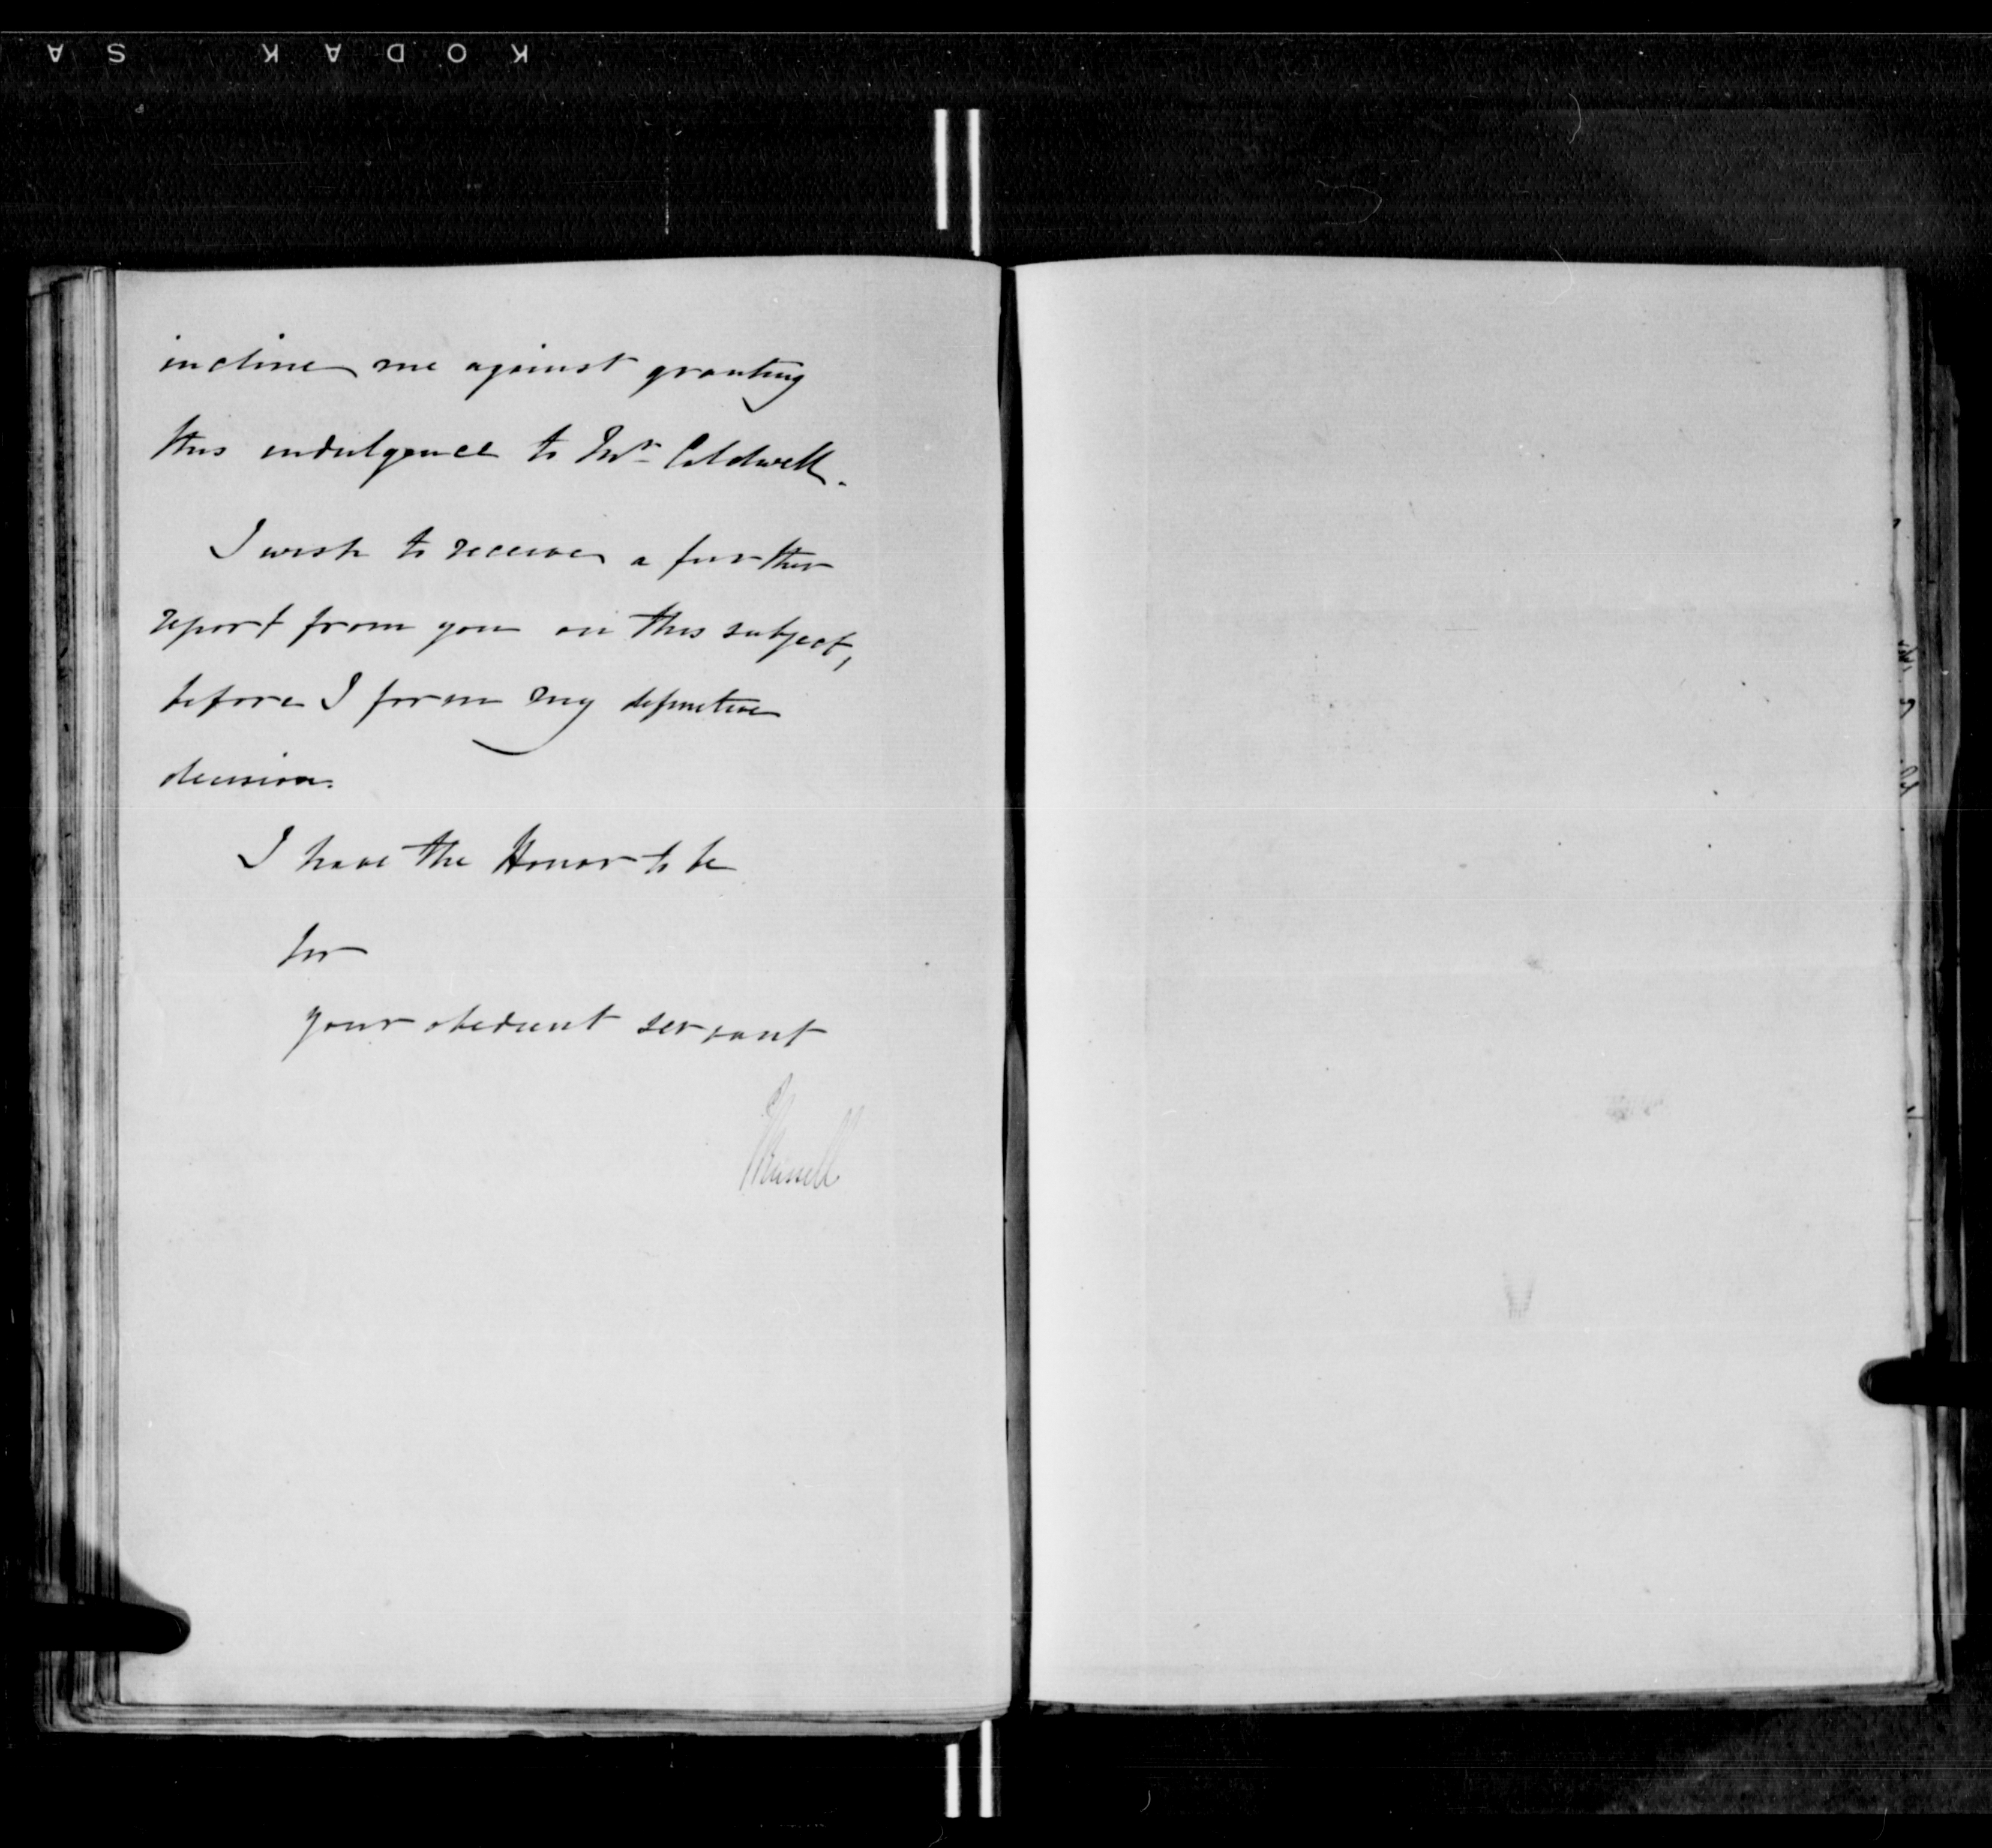 KODAK SA
incline me against granting
this indulgence to Mr. Caldwell.
I wish to receive a further
report from you on this subject,
before I form my definitive
decision.
I have the Honor to be
Sir
your obedient servant
JRussell